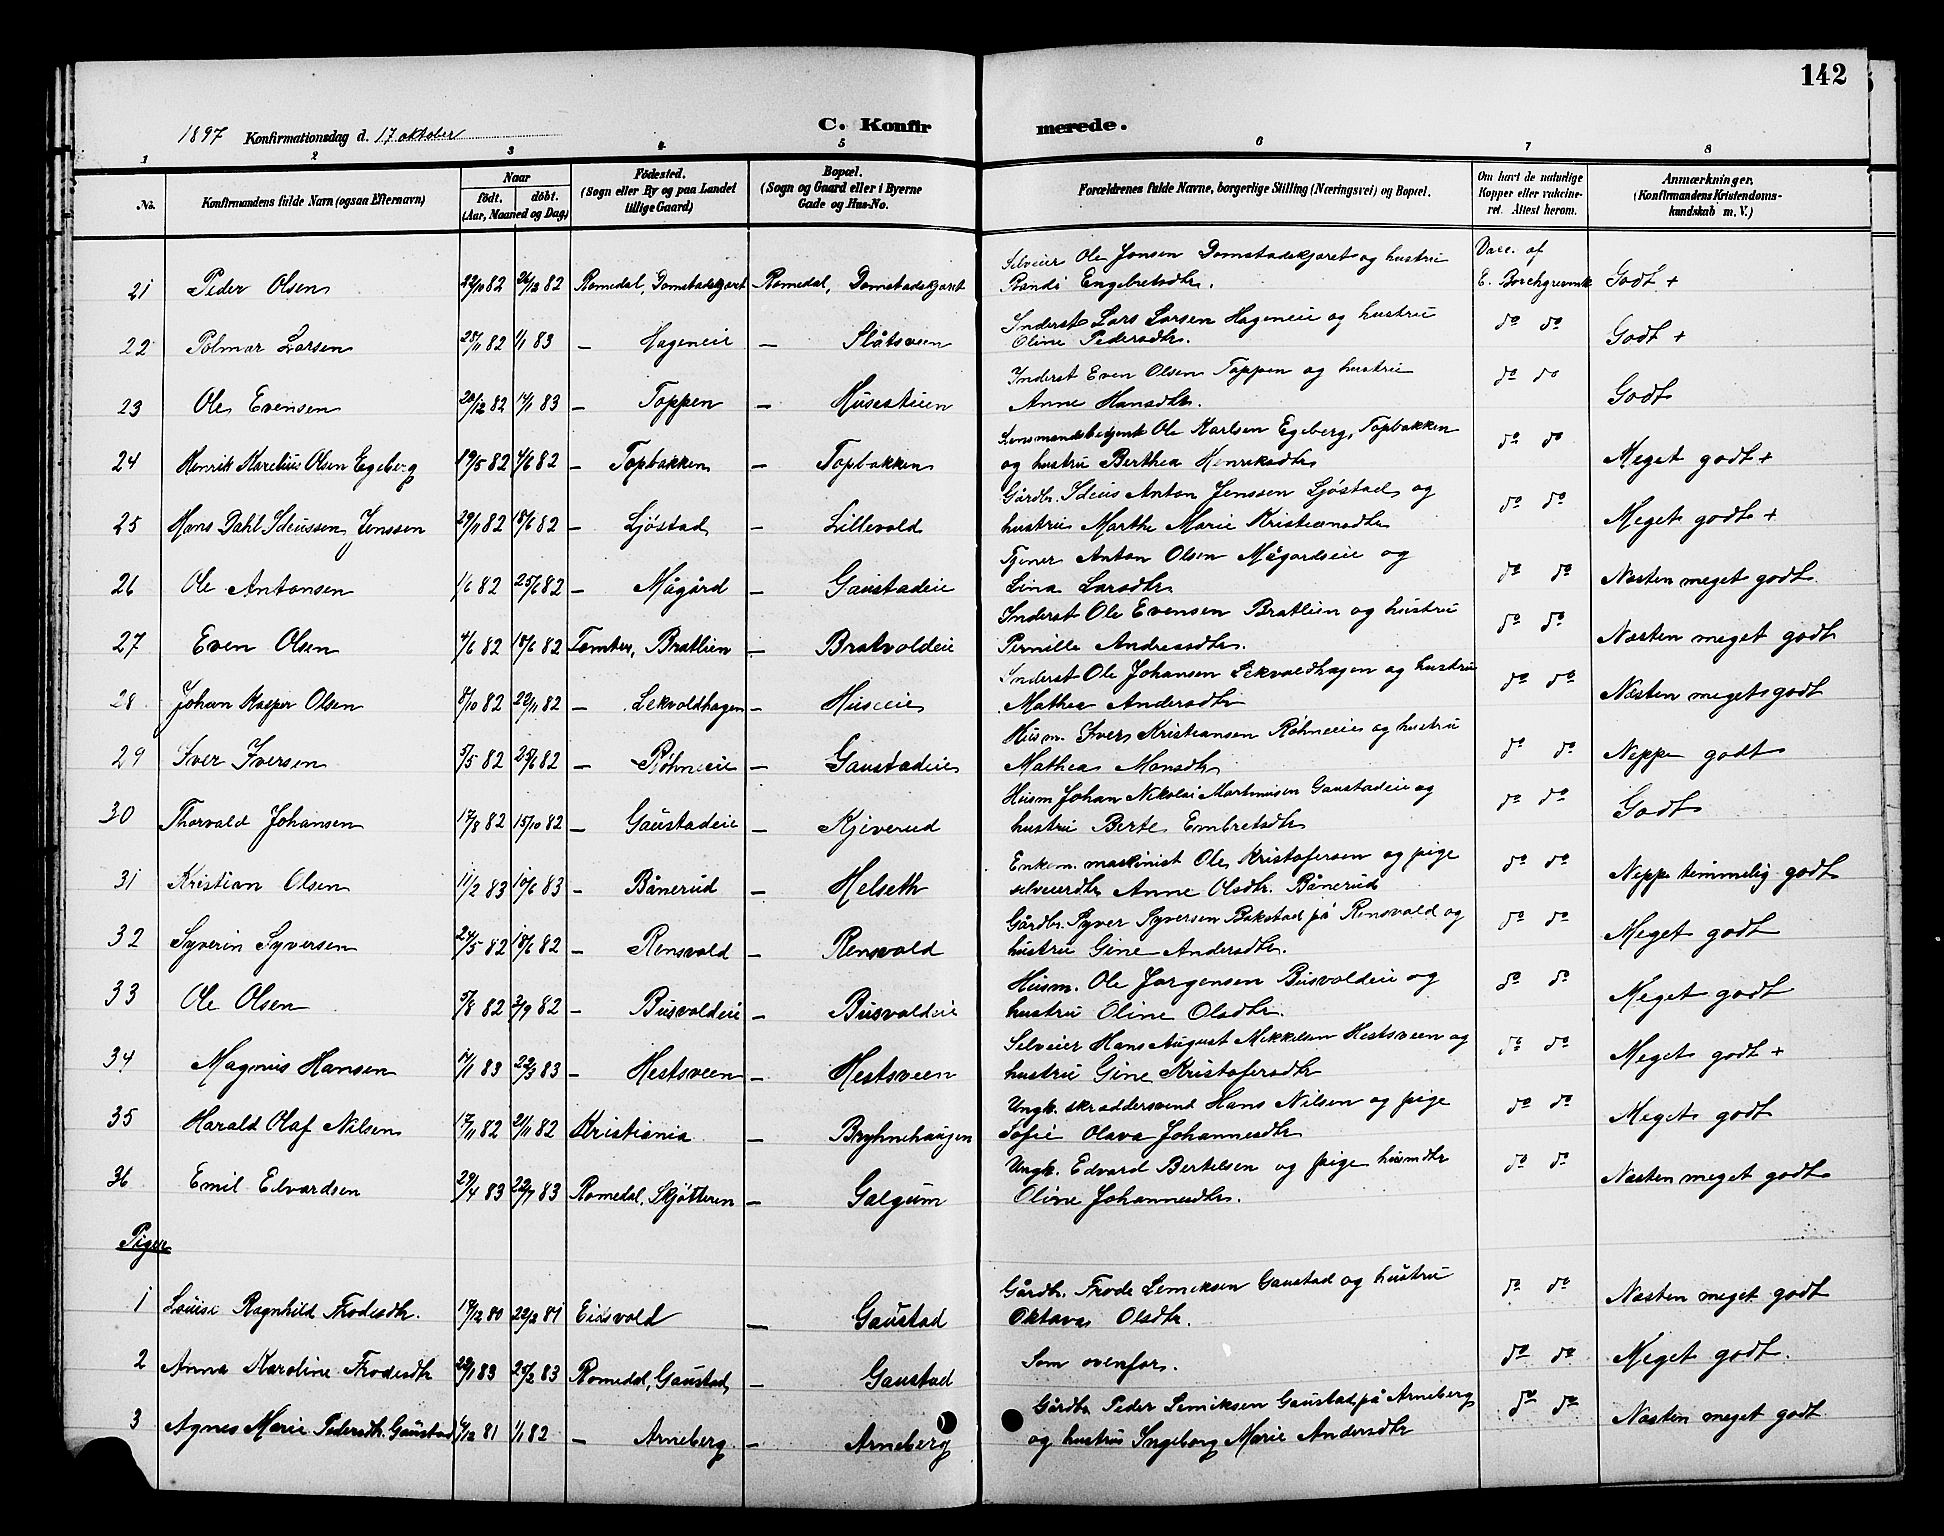 142
1897 Konfirmationsdag d. 17. oktober
C. Konfirmerede.
1 2 3 4 5 6 7 8
No. Konfirmandens fulde Navn (ogsaa Efternavn) Naar født. døbt. (Aar, Maaned og Dag) Fødested. (Sogn eller By og paa Landet tillige Gaard) Bopæl. (Sogn og Gaard eller i Byerne Gade og Hus-No. Forældrenes fulde Navne, borgerlige Stilling (Næringsvei) og Bopæl. Om havt de naturlige Kopper eller vakcineret. Attest herom. Anmærkninger, (Konfirmandens Kristendomskundskab m. V.)
21 Peder Olsen 22/10 82 26/12 82 Romedal, Domstadskjæret Romedal, Domstadskjæret Selveier Ole Jonsen Domstadskjæret og hustru Randi Engebretsdtr. Vacc. af E. Borchgrevink Godt +
22 Polmar Larsen 28/11 82 1/1 83 — Hageneie — Slåtsveen Inderst Lars Larsen Hageneie og hustru Oline Pedersdtr. do do Godt +
23 Ole Evensen 20/12 82 14/1 83 — Toppen — Husestuen Inderst Even Olsen Toppen og hustru Anne Hansdtr. do do Godt
24 Henrik Karelius Olsen Egeberg 19/5 82 4/6 82 — Topbakken — Topbakken Lensmandsbetjent Ole Karlsen Egeberg, Topbakken og hustru Berthea Henriksdtr do do Meget godt +
25 Hans Dahl Ideussen Jenssen 29/1 82 18/6 82 — Ljøstad — Lillevold Gårdbr. Ideus Anton Jenssen Ljøstad og hustru Marthe Marie Kristiansdtr do do Meget godt +
26 Ole Antonsen 1/6 82 25/6 82 — Mågård — Gaustadeie Tjener Anton Olsen Mågårdseie og Lina Larsdtr do do Næsten meget godt
27 Even Olsen 4/6 82 18/6 82 Tomter, Bratlien — Bratvoldeie Inderst Ole Evensen Bratlien og hustru Pernille Andreasdtr. do do Næsten meget godt
28 Johan Kasper Olsen 8/10 82 22/11 82 — Lekvoldhagen — Huseeie Inderst Ole Johansen Lekvoldhagen og hustru Mathea Andersdtr do do Næsten meget godt
29 Iver Iversen 5/5 82 25/6 82 — Røhneeie — Gaustadeie Husm. Iver Kristiansen Røhneeie og hustru Mathea Monsdtr do do Neppe godt
30 Thorvald Johansen 17/8 82 15/10 82 — Gaustadeie — Kjeverud Husm Johan Nikolai Martinusen Gaustadeie og hustru Berte Embretsdtr do do Godt
31 Kristian Olsen 11/2 83 10/6 83 — Bånerud — Helseth Enkem. maskinist Ole Kristofersen og pige selveierdtr Anne Olsdtr. Bånerud do do Neppe temmelig godt
32 Syverin Syversen 24/5 82 18/6 82 — Rensvold — Rensvold Gårdbr. Syver Syversen Bakstad på Rensvold og hustru Gine Andersdtr. do do Meget godt
33 Ole Olsen 5/8 82 3/9 82 — Busvoldeie — Busvoldeie Husm. Ole Jørgensen Busvoldeie og hustru Oline Olsdtr. do do Meget godt
34 Magnus Hansen 14/1 83 22/3 83 — Hestsveen — Hestsveen Selveier Hans August Mikkelsen Hestsveen og hustru Gine Kristofersdtr do do Meget godt +
35 Harald Olaf Nilsen 17/11 82 21/11 82 Kristiania — Bryhnehaugen Ungk. skræddersvend Hans Nilsen og pige Sofie Olava Johannesdtr do do Meget godt
36 Emil Edvardsen 29/4 83 22/7 83 Romedal, Skjøtteren — Galgum Ungk. Edvard Bertelsen og pige husmdtr Oline Johannesdtr. do do Næsten meget godt
Piger
1 Louise Ragnhild Frodesdtr. 18/12 80 22/2 81 Eidsvold — Gaustad Gårdbr. Frode Lemiksen Gaustad og hustru Oktava Olsdtr. do do Næsten meget godt
2 Anna Karoline Frodesdtr 22/1 83 25/3 83 Romedal, Gaustad — Gaustad Som ovenfor. do do Meget godt.
3 Agnes Marie Pedersdtr. Gaustad 4/12 81 1/1 82 — Arneberg — Arneberg Gårdbr Peder Lemiksen Gaustad på Arneberg og hustru Ingeborg Marie Andersdtr do do Næsten meget godt